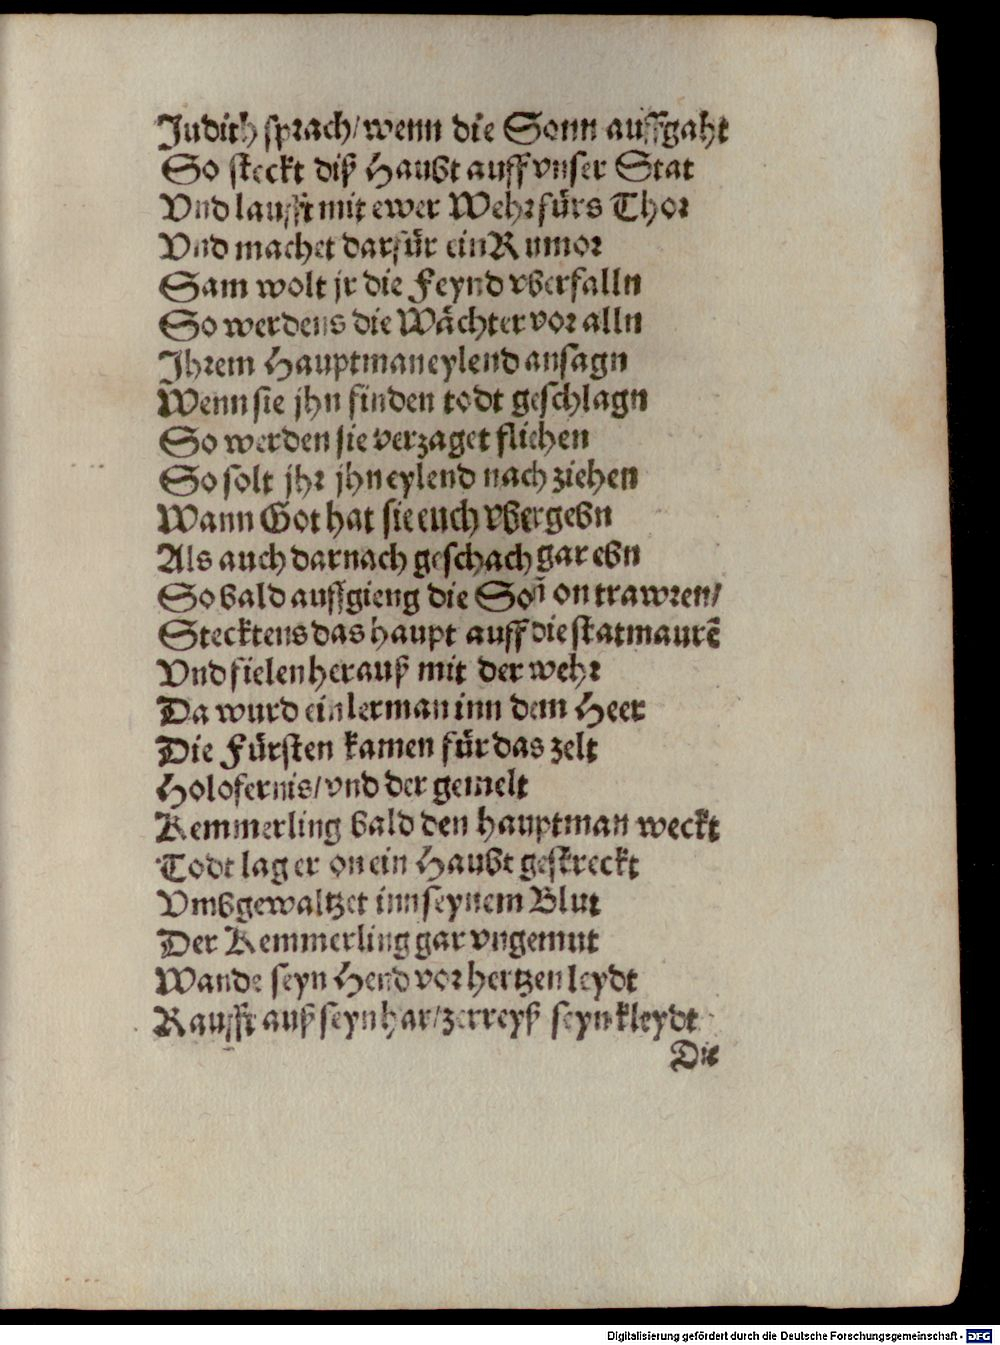 Judith sprach/ wenn die Sonn auffgaht
So steckt diß Haubt auff vnser Stat
Vnd laufft mit ewer Wehr fürs Thor
Vnd machet darfür ein Rumor
Sam wolt jr die Feynd vberfalln
So werdens die Wächter vor alln
Ihrem Hauptman eylend ansagn
Wenn sie jhn finden todt geschlagn
So werden sie verzaget fliehen
So solt jhr jhn eylend nach ziehen
Wann Got hat sie euch vbergebn
Als auch darnach geschach gar ebn
So bald auffgieng die Soñ on trawren/
Stecktens das haupt auff die statmaurē
Vnd fielen herauß mit der wehr
Da wurd ein lerman inn dem Heer
Die Fürsten kamen für das zelt
Holofernis/ vnd der gemelt
Kemmerling bald den hauptman weckt
Todt lag er on ein Haubt gestreckt
Vmbgewaltzet inn seynem Blut
Der Kemmerling gar vngemut
Wande seyn Hend vor hertzenleydt
Raufft auß seyn har/ zerreyß seyn kleydt
Die
Digitalisierung gefördert durch die Deutsche Forschungsgemeinschaft - DFG